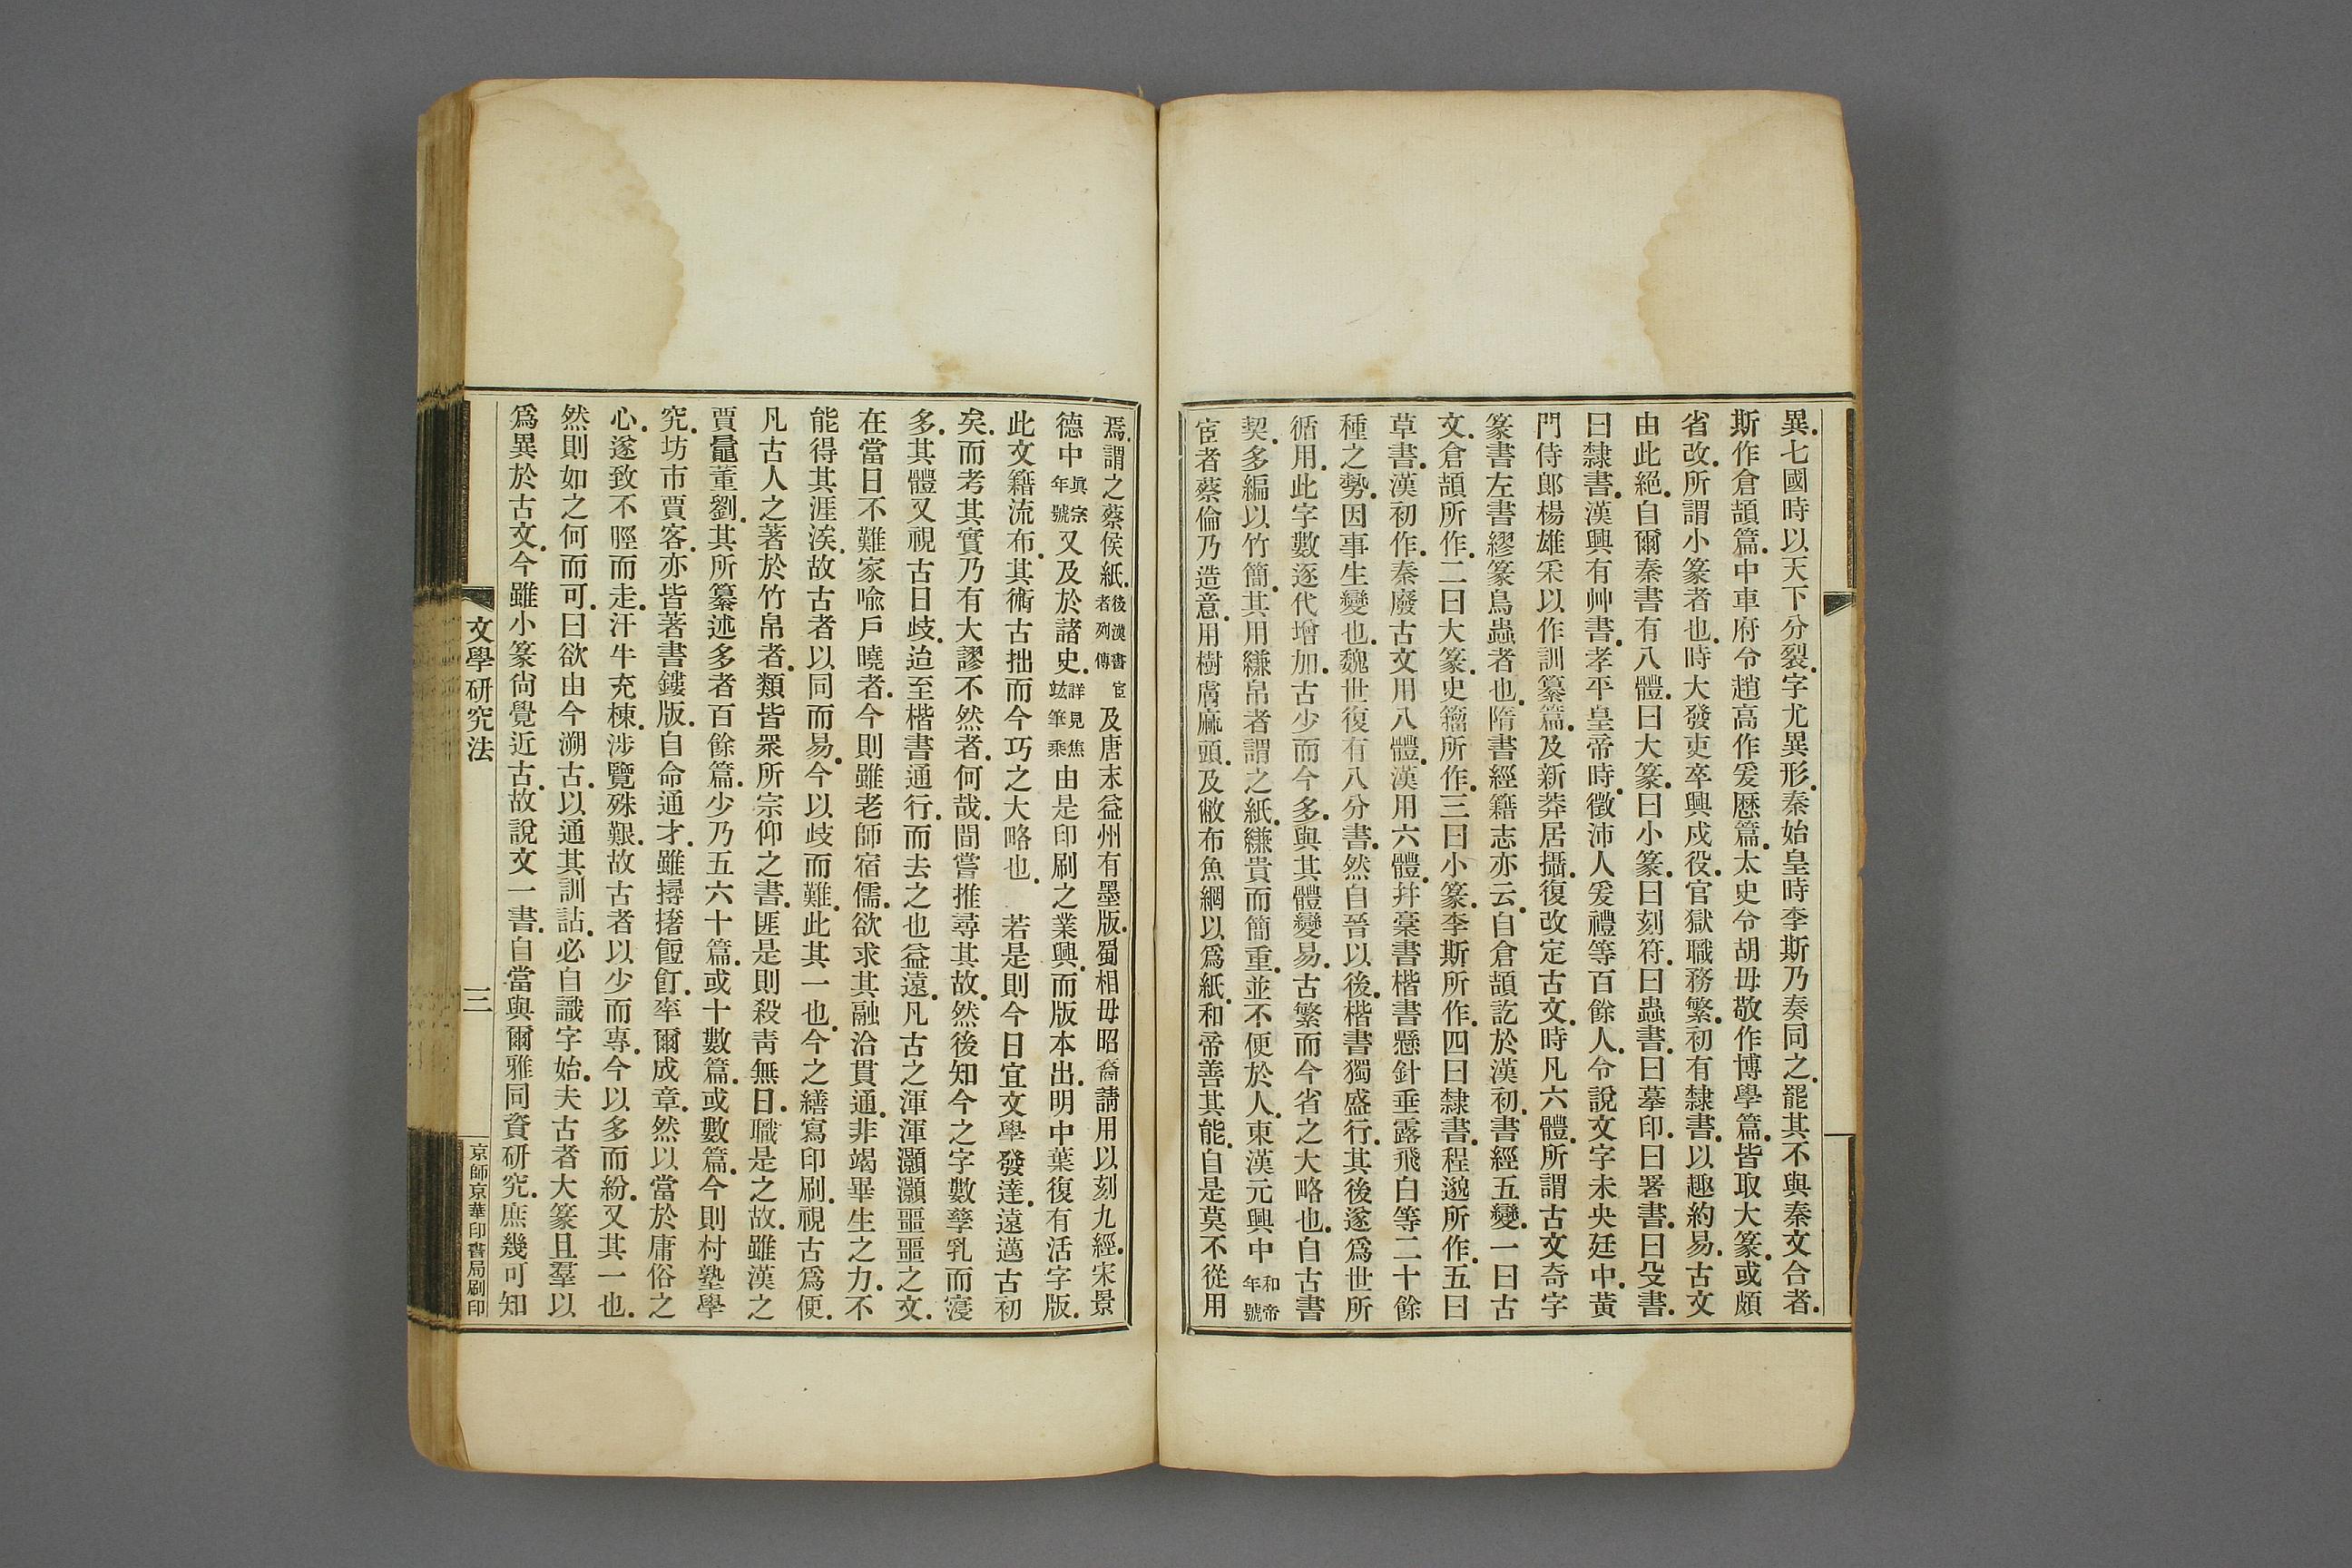 異．七國時以天下分裂．字尤異形．秦始皇時李斯乃奏同之．罷其不與秦文合者．
斯作倉頡篇．中車府令趙高作爰歷篇．太史令胡毋敬作博學篇．皆取大篆．或頗
省改．所謂小篆者也．時大發吏卒興戍役．官獄職務繁．初有隸書．以趣約易．古文
由此絕．自爾秦書有八體．曰大篆．曰小篆．曰刻符．曰蟲書．曰摹印．曰署書．曰殳書．
曰隸書．漢興有艸書．孝平皇帝時．徵沛人爰禮等百餘人．令說文字未央廷中．黃
門侍郎楊雄采以作訓纂篇．及新莽居攝．復改定古文．時凡六體．所謂古文奇字
篆書左書繆篆鳥蟲者也．隋書經籍志亦云．自倉頡訖於漢初．書經五變．一曰古
文．倉頡所作．二曰大篆．史籀所作．三曰小篆．李斯所作．四曰隸書．程邈所作．五曰
草書．漢初作．秦廢古文用八體．漢用六體．幷稾書楷書懸針垂露飛白等二十餘
種之勢．因事生變也．魏世復有八分書．然自晉以後．楷書獨盛行．其後遂爲世所
循用．此字數逐代增加．古少而今多．與其體變易．古繁而今省之大略也．自古書
契．多編以竹簡．其用縑帛者謂之紙．縑貴而簡重．並不便於人．東漢元興中和帝年號
宦者蔡倫乃造意．用樹膚麻頭．及敝布魚網以爲紙．和帝善其能．自是莫不從用
焉．謂之蔡侯紙．後漢書宦者列傳及唐末益州有墨版．蜀相毋昭裔請用以刻九經．宋景
德中眞宗年號又及於諸史．詳見焦竑筆乘由是印刷之業興．而版本出．明中葉復有活字版．
此文籍流布．其術古拙而今巧之大略也．　若是則今日宜文學發達．遠邁古初
矣．而考其實乃有大謬不然者．何哉．間嘗推尋其故．然後知今之字數孳乳而寖
多．其體又視古日歧．迨至楷書通行．而去之也益遠．凡古之渾渾灝灝噩噩之文．
在當日不難家喻戶曉者．今則雖老師宿儒．欲求其融洽貫通．非竭畢生之力．不
能得其涯涘．故古者以同而易．今以歧而難．此其一也．今之繕寫印刷．視古爲便．
凡古人之著於竹帛者．類皆眾所宗仰之書．匪是則殺靑無日．職是之故．雖漢之
賈鼂董劉．其所纂述多者百餘篇．少乃五六十篇．或十數篇．或數篇．今則村塾學
究．坊市賈客．亦皆著書鏤版．自命通才．雖撏撦餖飣．率爾成章．然以當於庸俗之
心．遂致不脛而走．汗牛充棟．涉覽殊艱．故古者以少而專．今以多而紛．又其一也．
然則如之何而可．曰欲由今溯古．以通其訓詁．必自識字始．夫古者大篆且羣以
爲異於古文．今雖小篆尙覺近古．故說文一書．自當與爾雅同資研究．庶幾可知
文學研究法
三
京師京華印書局刷印